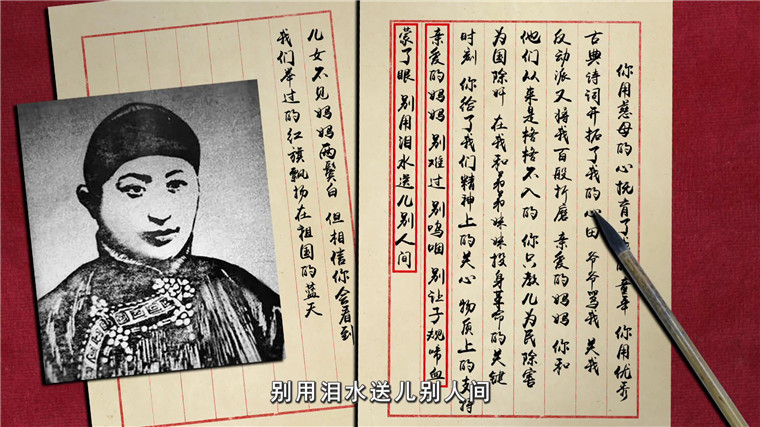 你用慈母的心抚育了我的童年 你用优秀
古典诗词开拓了我的心田 爷爷骂我 关我
反动派又将我百般折磨 亲爱的妈妈 你和
他们从来是格格不入的 你只教儿为民除害
为国除奸 在我和弟弟妹妹投身革命的关键
时刻 你给了我们精神上的关心 物质上的支持
亲爱的妈妈 别难过 别呜咽 别让子规啼血
蒙了眼 别用泪水送儿别人间
儿女不见妈妈两鬓白 但相信你会看到
我们举过的红旗飘扬在祖国的蓝天
别用泪水送儿别人间